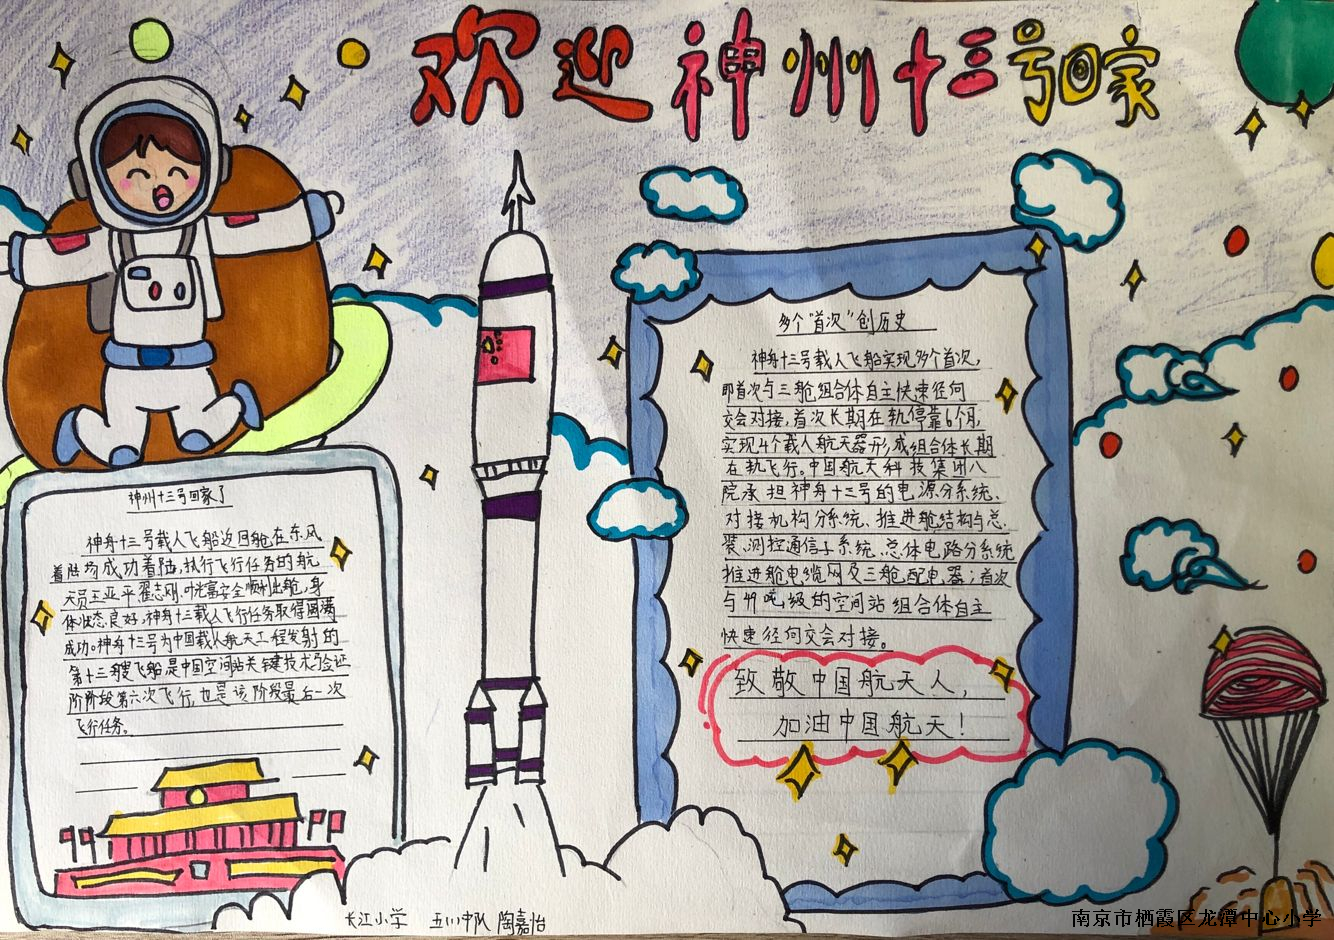 欢迎神州十三号回家
神州十三号回家了
神舟十三号载人飞船返回舱在东风
着陆场成功着陆,执行飞行任务的航
天员王亚平翟志刚、叶光富安全顺利出舱,身
体状态良好,神舟十三载人飞行任务取得圆满
成功。神舟十三号为中国载人航天工程发射的
第十三艘飞船是中国空间站关键技术验证
阶段第六次飞行,也是该阶段最后一次
飞行任务。
多个"首次"创历史
神舟十三号载人飞船实现多个首次,
即首次与三舱组合体自主快速径向
交会对接,首次长期在轨停靠6个月,
实现4个载人航天器形成组合体长期
在轨飞行。中国航天科技集团八
院承担神舟十三号的电源分系统、
对接机构分系统、推进舱结构与总
装、测控通信子系统、总体电路分系统
推进舱电缆网及三舱配电器;首次
与 吨级的空间站组合体自主
快速径向交会对接。
致敬中国航天人,
加油中国航天!
长江小学 五川中队 陶嘉怡
南京市栖霞区龙潭中心小学